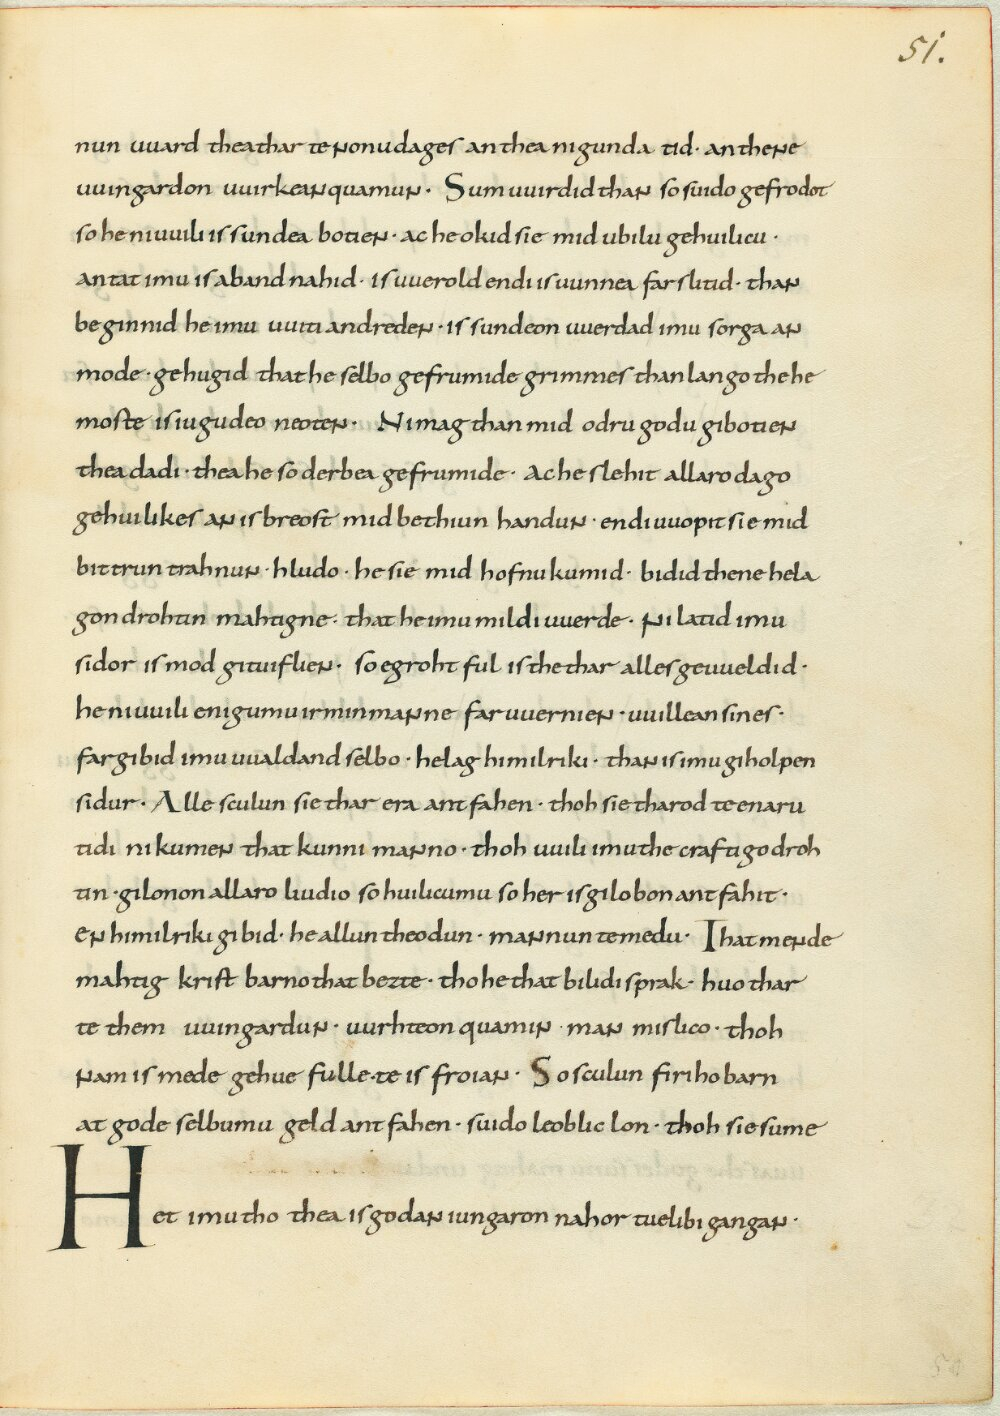 51.
nun uuard thea thar te nonu dages an thea nigunda tid· an thene
uuingardon uuirkean quamun· Sum uuirdid than so suido gefrodot
so he ni uuili is sundea botien· ac he okid sie mid ubilu gehuilicu·
antat imu is aband nahid· is uuerold endi is uunnea farslitid· than
beginnid he imu uuiti andreden· is sundeon uuerdad imu sorga an
mode· gehugid that he selbo gefrumide grimmes than lango the he
moste is iugudeo neoten· Ni mag than mid odru godu gibotien
thea dadi· thea he so derbea gefrumide· Ac he slehit allaro dago
gehuilikes an is breost mid bethiun handun· endi uuopit sie mid
bittrun trahnun· hludo· he sie mid hofnu kumid· bidid thene hela
gon drohtin mahtigne· that he imu mildi uuerde· Ni latid imu
sidor is mod gituiflien· so egroht ful is the thar alles geuueldid·
he ni uuili enigumu irminmanne faruuernien· uuillean sines·
fargibid imu uualdand selbo· helag himilriki· than is imu giholpen
sidur· Alle sculun sie thar era antfahen· thoh sie tharod te enaru
tidi ni kumen that kunni manno· thoh uuili imu the craftigo droh
tin· gilonon allaro liudio so huilicumu so her is gilobon antfahit·
En himilriki gibid· he allun theodun· mannun te medu· That mende
mahtig krist barno that bezte· tho he that bilidi sprak· huo thar
te them uuingardun· uurhteon quamin man mislico· thoh
nam is mede gehue fulle· te is froian· So sculun firiho barn
at gode selbumu geld antfahen· suido leoblic lon· thoh sie sume
Het imu tho thea is godan iungaron nahor tuelibi gangan·